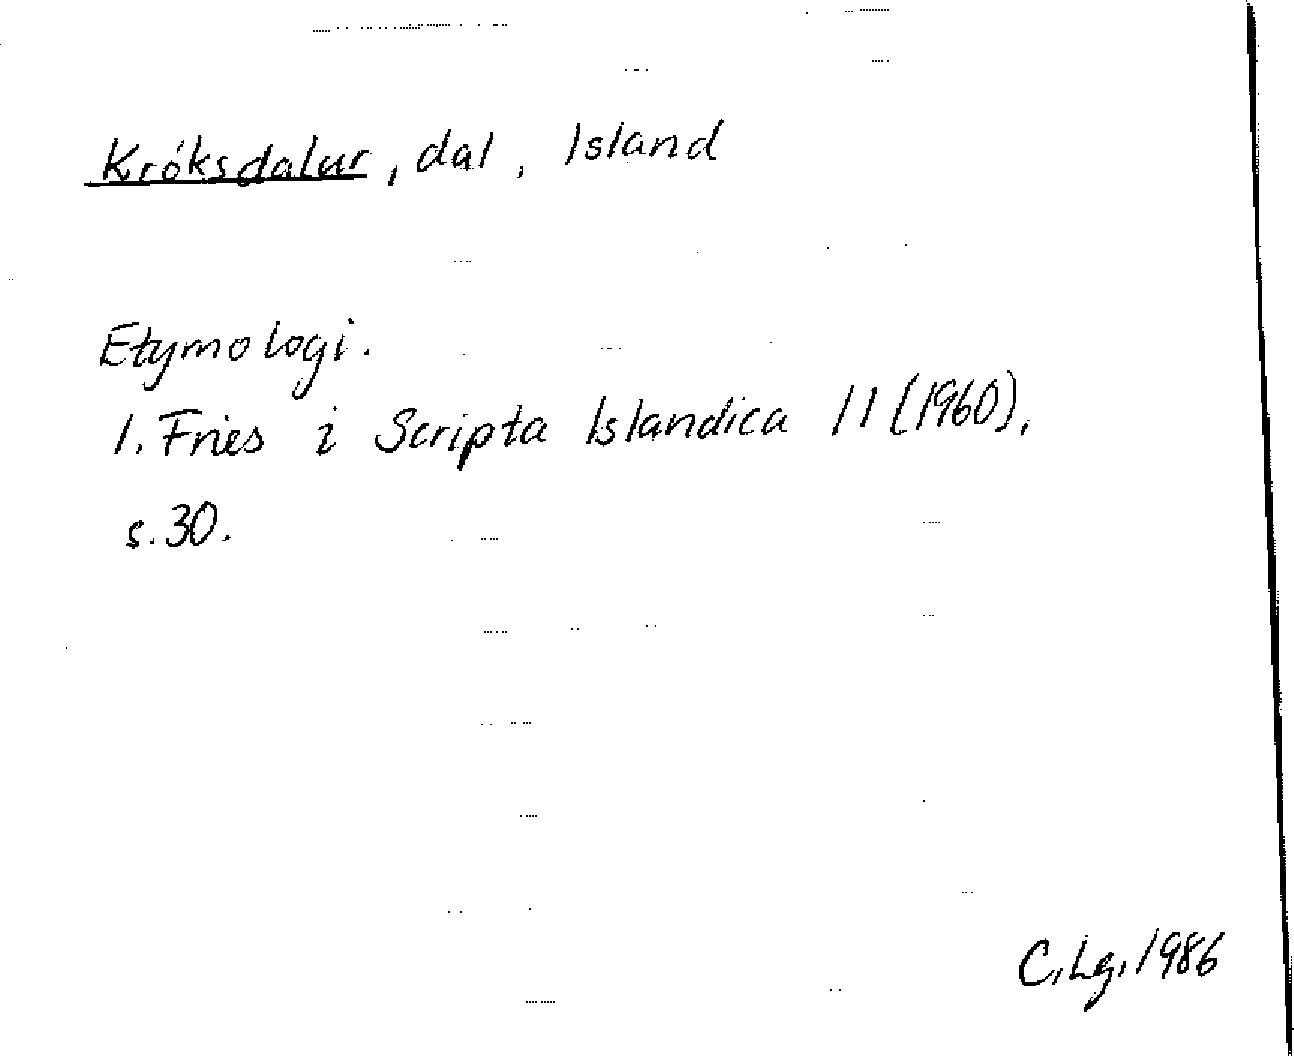 Króksdalur, dal, Island
Etymologi.
I. Fries i Scripta Islandica 11 (1960),
s. 30.
C. Lg. 1986